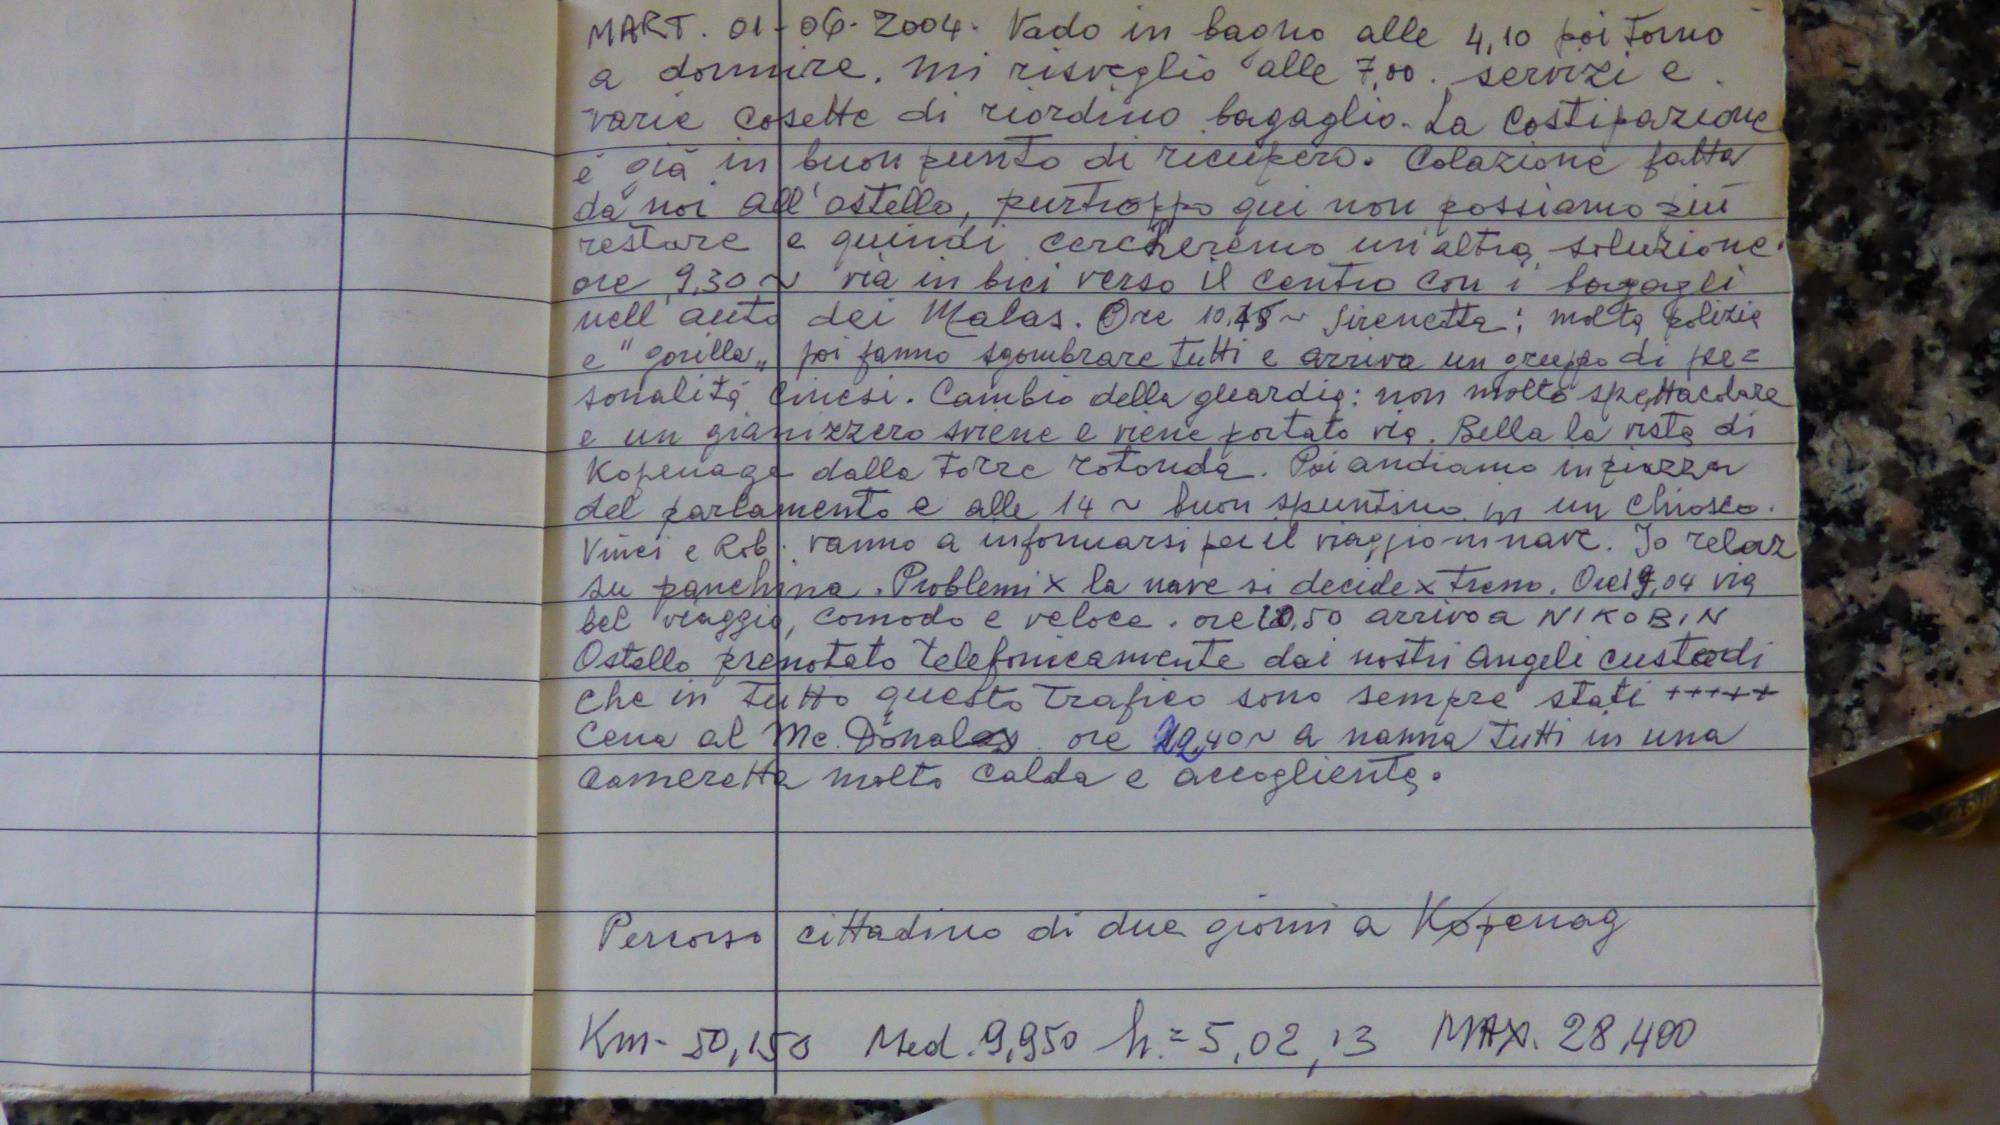 MART. 01-06-2004. Vado in bagno alle 4,10 poi torno
a dormire. Mi risveglio alle 7,00. servizi e
varie cosette di riordino bagaglio. La costipazione
è già in buon punto di ricupero. Colazione fatta
da noi all'ostello, purtroppo qui non possiamo più
restare e quindi cercheremo un'altra soluzione.
ore 9,30 ~ via in bici verso il centro con i bagagli
nell'auto dei Malas. Ore ~ Sirenetta; molta polizia
e "gorilla" poi fanno sgombrare tutti e arriva un gruppo di per=
sonalità cinesi. Cambio della guardia: non molto spettacolare
e un gianizzero sviene e viene portato via. Bella la vista di
Kopenage dalla Torre rotonda. Poi andiamo in piazza
del parlamento e alle 14 ~ buon spuntino in un chiosco.
Vinci e Rob. vanno a informarsi per il viaggio in nave. Io relax
su panchina. Problemi x la nave si decide x treno. Ore via
bel viaggio, comodo e veloce. ore arrivo a NIKOBIN
Ostello prenotato telefonicamente dai nostri angeli custodi
che in tutto questo trafico sono sempre stati +++++
Cena al Mc. Donalds ore 22,40 ~ a nanna tutti in una
cameretta molto calda e accogliente.
Percorso cittadino di due giorni a Kopenag
Km- 50,150 Med. 9,950 h.= 5,02,13 MAX. 28,400